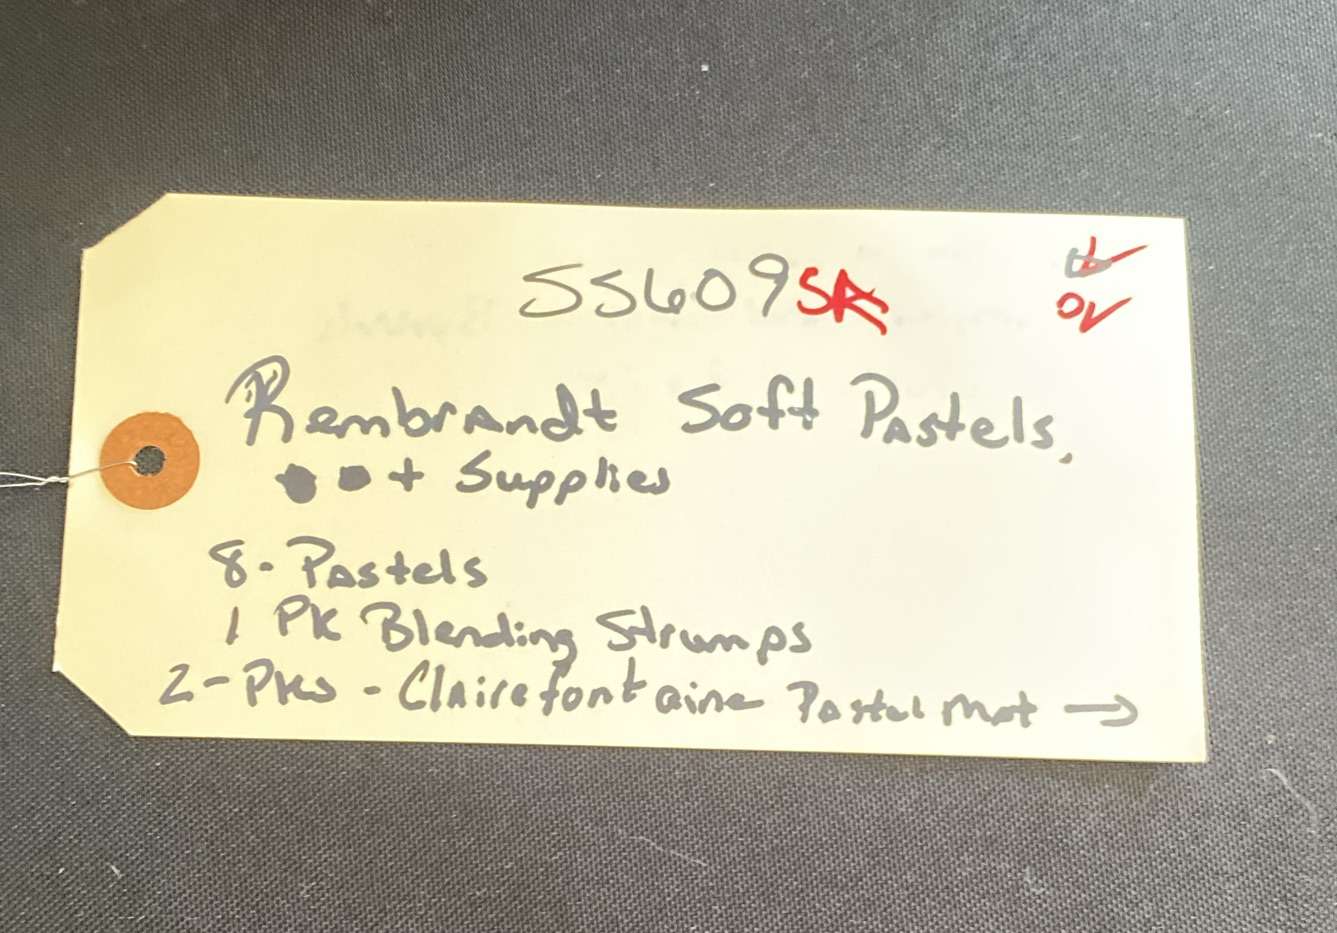 55609 SA
Rembrandt Soft Pastels,
+ Supplies
8 - Pastels
1 PK Blending Strumps
2 - PKs - Clairefontaine Pastel Mat →